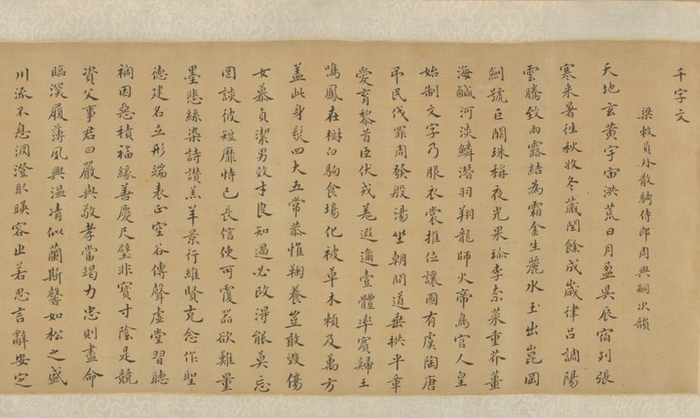 千字文
梁敕員外散騎侍郎周興嗣次韻
天地玄黃宇宙洪荒日月盈昃辰宿列張
寒来暑往秋收冬藏閏餘成歲律呂調陽
雲騰致雨露結為霜金生麗水玉出崑岡
劍號巨闕珠稱夜光果珎李柰菜重芥薑
海鹹河淡鱗潛羽翔龍師火帝鳥官人皇
始制文字乃服衣裳推位讓國有虞陶唐
弔民伐罪周發殷湯坐朝問道垂拱平章
愛育黎首臣伏戎羌遐邇壹體率賓歸王
鳴鳳在樹白駒食場化被草木賴及萬方
蓋此身髮四大五常恭惟鞠養豈敢毀傷
女慕貞潔男效才良知過必改得能莫忘
罔談彼短靡恃己長信使可覆器欲難量
墨悲絲染詩讚羔羊景行維賢克念作聖
德建名立形端表正空谷傳聲虛堂習聽
禍因惡積福緣善慶尺璧非寶寸陰是競
資父事君曰嚴與敬孝當竭力忠則盡命
臨深履薄夙興溫凊似蘭斯馨如松之盛
川流不息淵澄取暎容止若思言辭安定